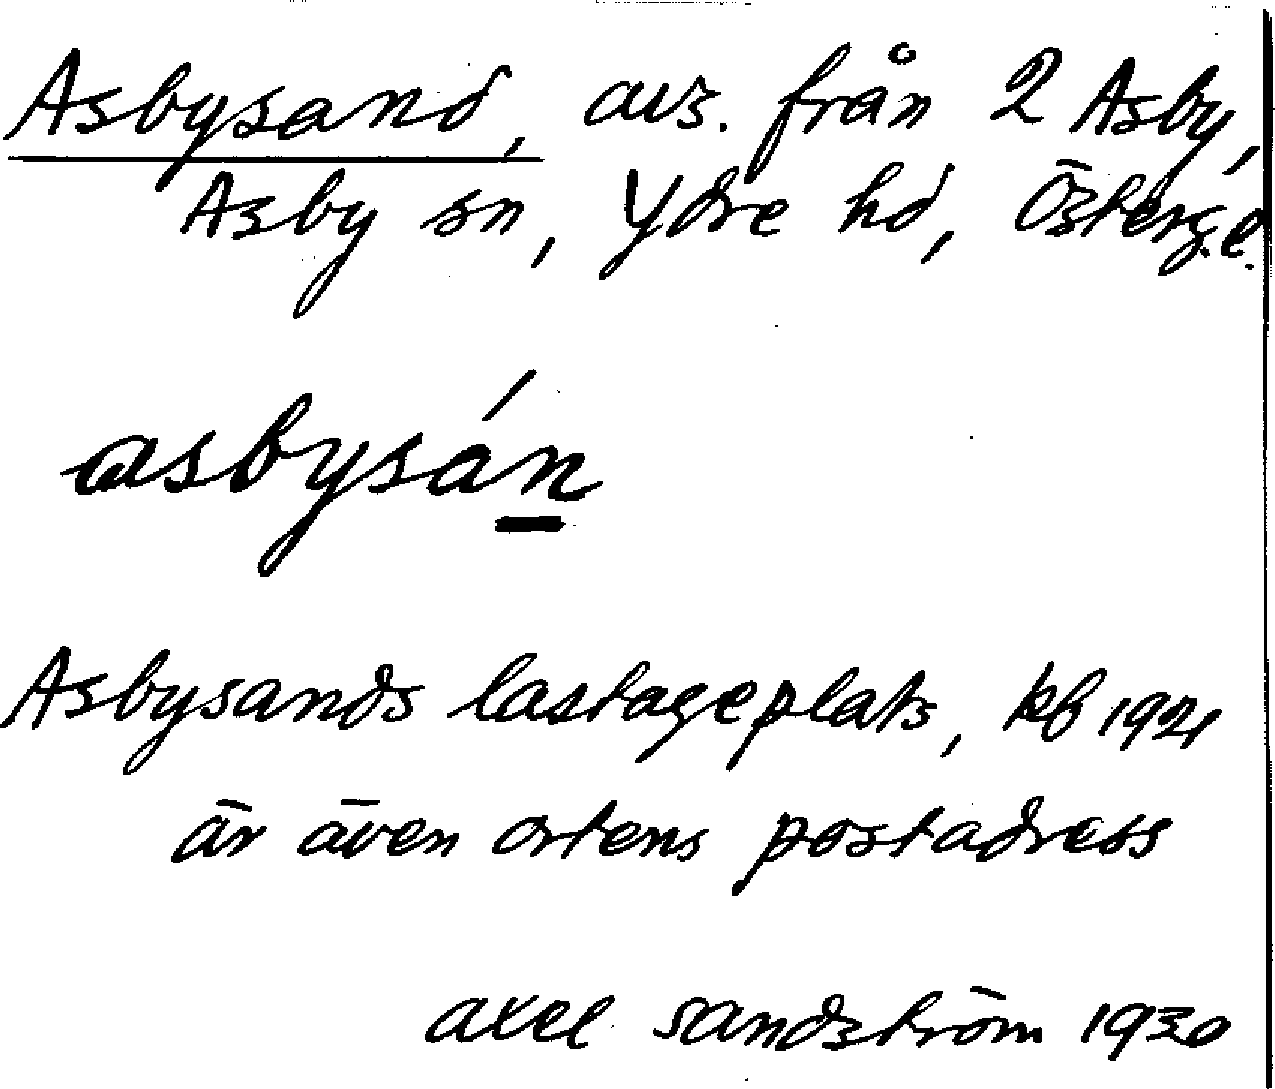 Asbysand, avs. från 2 Asby,
Asby sn, Ydre hd, Österg.l.
asbysán
Asbysands lastageplats, kb 1921
är även ortens postadress
axel sandström 1930